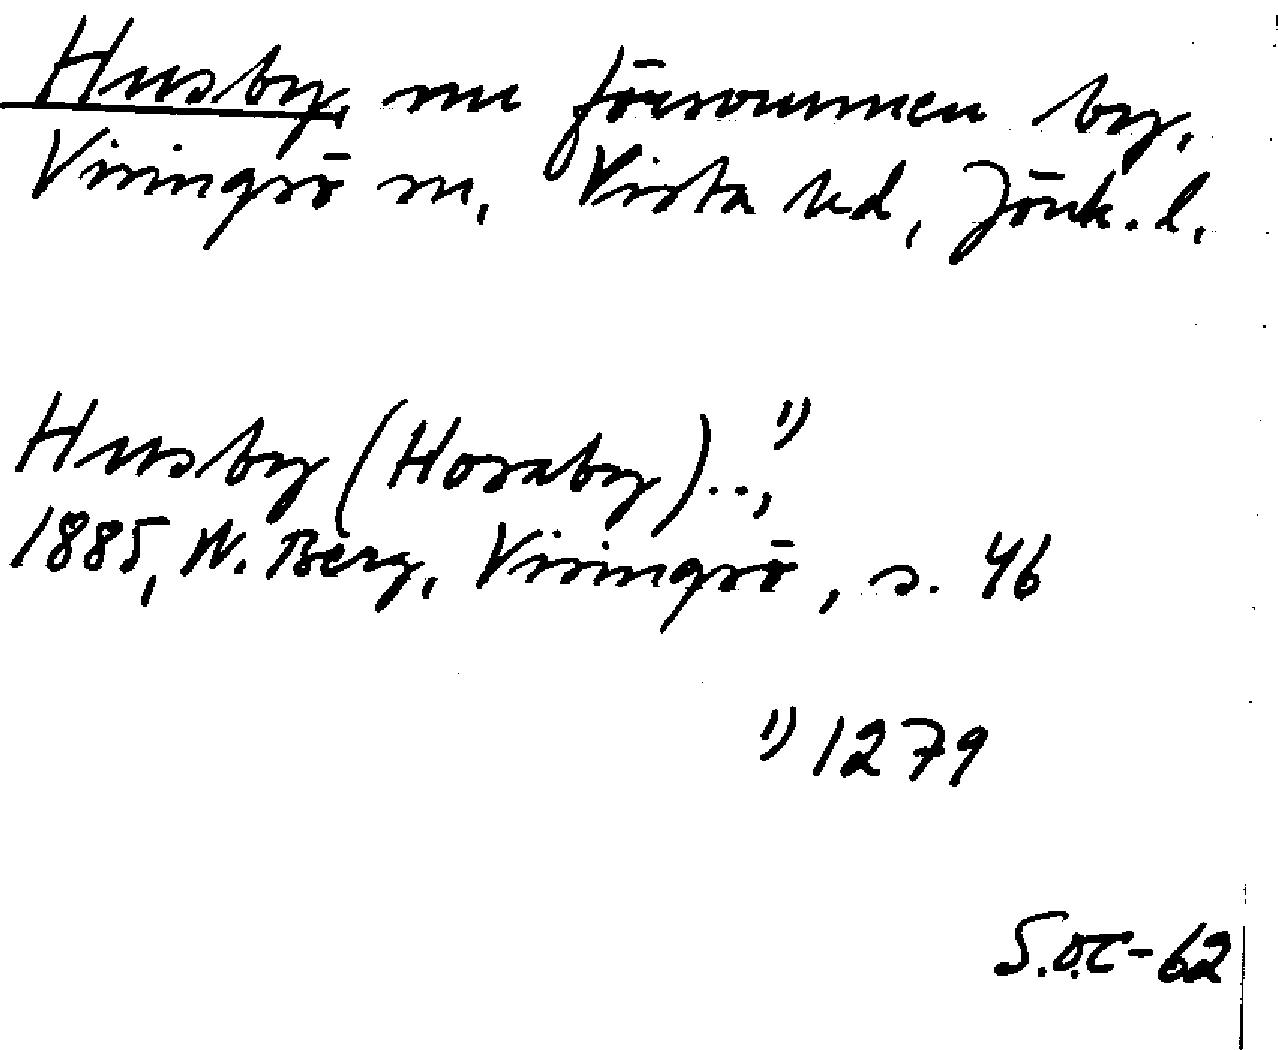 Husby, nu försvunnen by,
Visingsö sn, Vista hd, Jönk. l.
Husby (Horaby)..,¹⁾
1885, W. Berg, Visingsö, s. 46
¹⁾ 1279
S.O.C-62